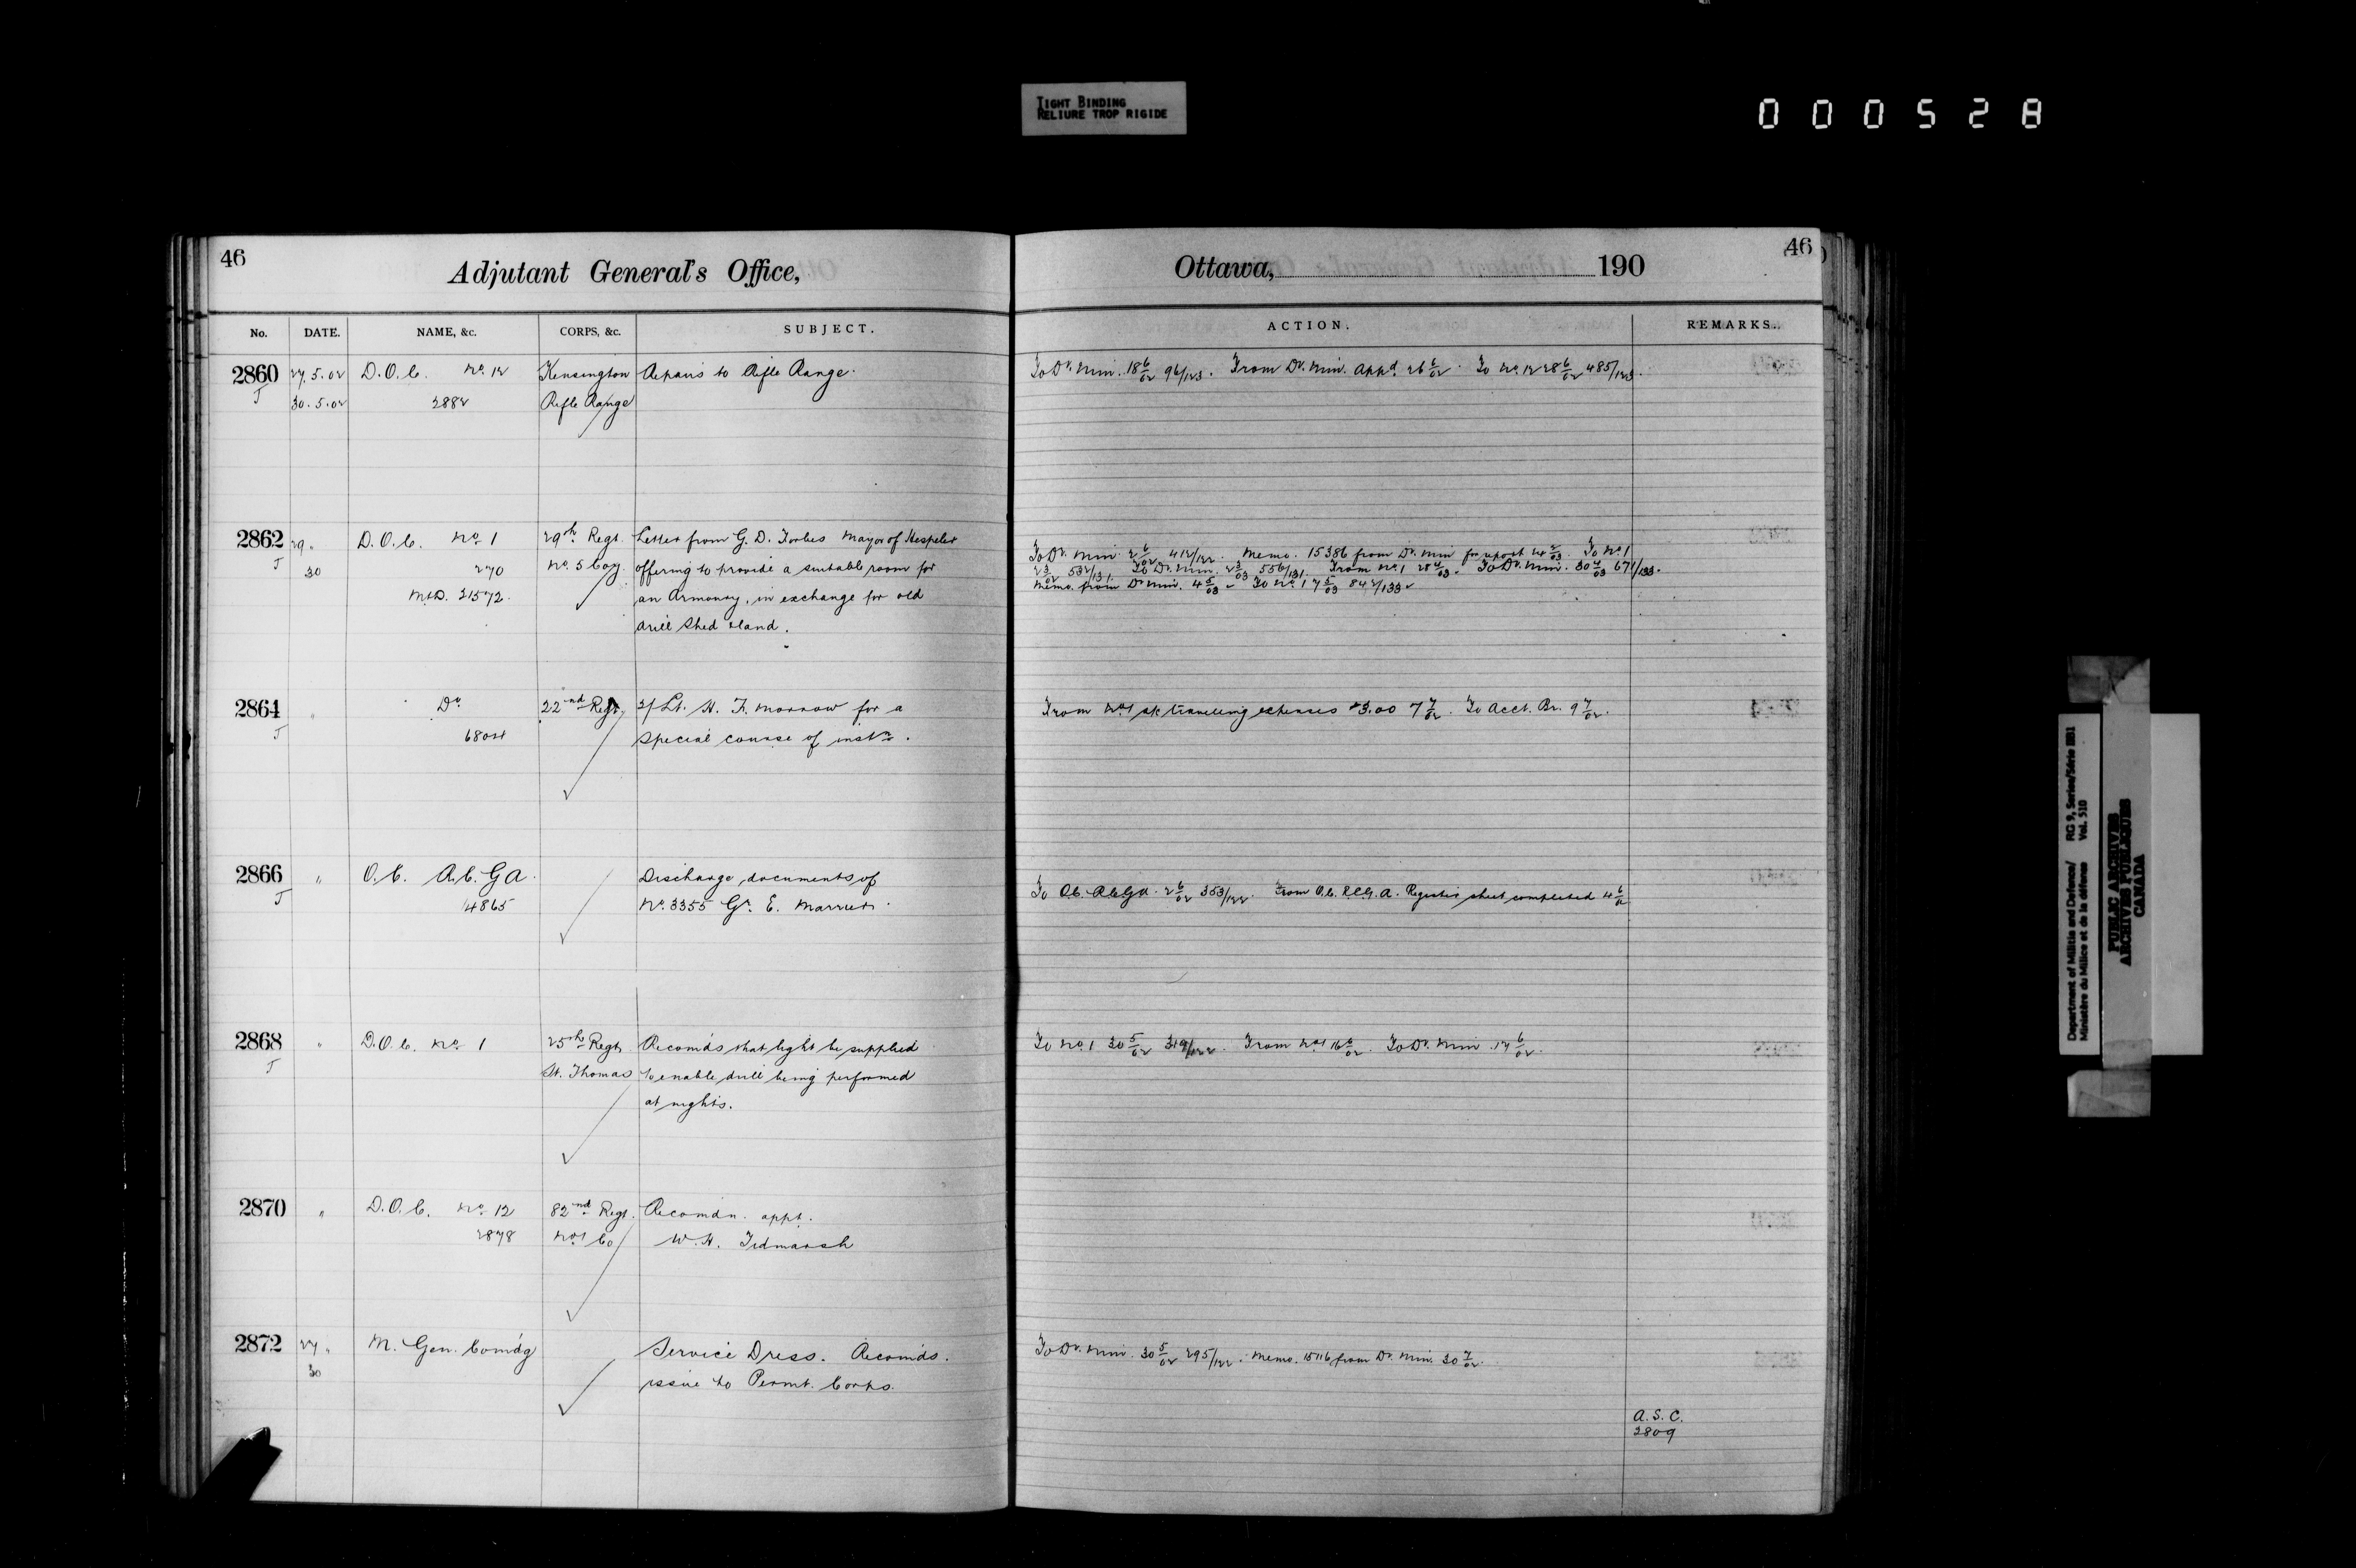 TIGHT BINDING
RELIURE TROP RIGIDE
000528
46
Adjutant General's Office,
No. DATE. NAME, &c. CORPS, &c. SUBJECT.
2860 27.5.02 D.O.C. No. 12 Kensington Repairs to Rifle Range.
J 30.5.02 2882 Rifle Range
2862 29 " D.O.C. No 1 29th Regt. Letter from G. D. Forbes Mayor of Hespeler
J 30 270 No. 5 Coy. offering to provide a suitable room for
M&D. 21572. an Armoury, in exchange for old
drill shed & land.
2864 " Do. 22nd Regt. 2/Lt. H. F. Morrow for a
J 6804 Special course of instn.
2866 " O.C. R.C.G.A. Discharge documents of
J 4865 No. 3355 Gr. E.
2868 " D.O.C. No 1 25th Regt. Recomds that light be supplied
J St. Thomas to enable drill being performed
at nights.
2870 " D.O.C. No 12 82nd Regt. Recomdn. appt.
2878 No 1 Co W. H. Tidmarsh
2872 27 " M. Gen. Comdg Service Dress. Recomds.
30 issue to Permt. Corps.
46
Ottawa, 190
ACTION. REMARKS.
To Dr. Min. 18 6/02 96/123. From Dr. Min. appd. 26 6/02. To No. 12 28 6/02 485/123.
To Dr. Min. 2 6/02 412/122. Memo. 15386 from Dr. Min for report 24 2/03. To No 1
2 3/03 532/131. To Dr. Min. 2 3/03 556/131. From No. 1 28 4/03. To Dr. Min. 30 4/03 671/133.
Memo. from Dr Min. 4 5/03. To No. 1 7 5/03 842/133.
From No 1 travelling expenses $3.00 7 7/02. To Acct. Br. 9 7/02.
To O.C. R.C.G.A. 2 6/02 353/122. From O.C. R.C.G.A. Register sheet completed 4 6/02
To No. 1 30 5/02 319/122. From No 1 16 6/02. To Dr. Min. 17 6/02.
To Dr. Min. 30 5/02 295/122. Memo. 15116 from Dr. Min. 30 7/02.
A.S.C.
2809
Department of Militia and Defence/ RG 9, Series/Série IIB1
Ministère du Milice et de la défense Vol. 510
PUBLIC ARCHIVES
ARCHIVES PUBLIQUES
CANADA